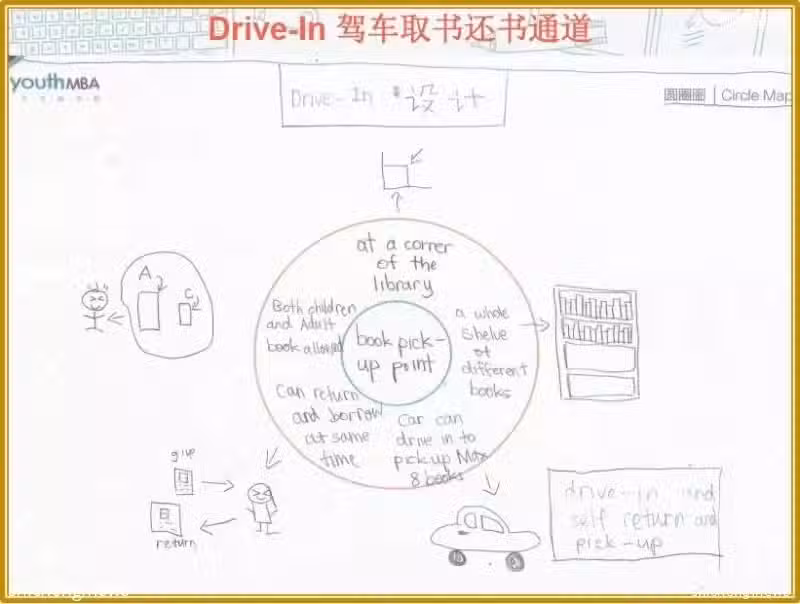 Drive-In 驾车取书还书通道
youthMBA
Drive-In 设计
圆圈图 | Circle Map
?
at a corner
of the
library
A
C
Both children
and Adult
book allowed
book pick-
up point
a whole
shelve
of
different
books
Can return
and borrow
at same
time
Car can
drive in to
pick up Max
8 books
give
return
drive-in and
self return and
pick-up